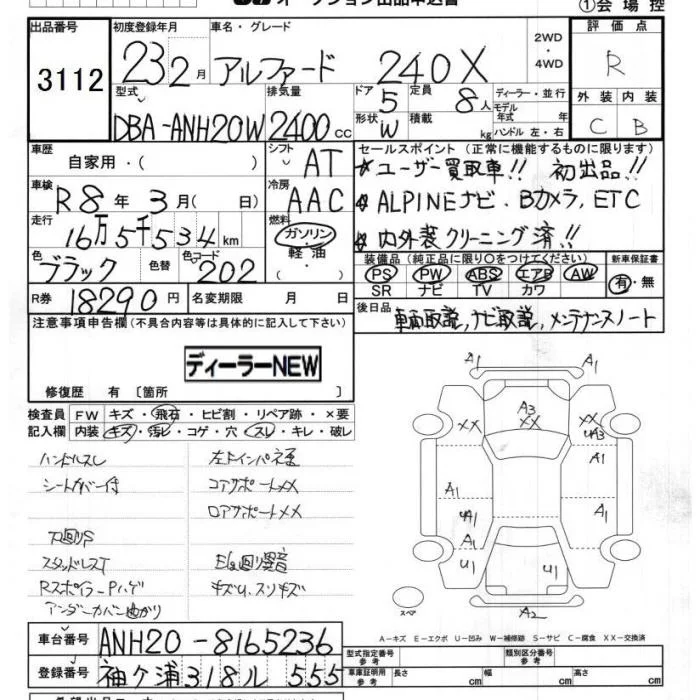 オークション出品申込書
①会場控
出品番号 3112
初度登録年月 23 2月
車名・グレード アルファード 240X
2WD・4WD
評価点 R
外装 C
内装 B
型式 DBA-ANH20W
排気量 2400cc
ドア 5
形状 W
定員 8人
積載 kg
ディーラー・並行
モデル年式 年式
ハンドル 左・右
車歴 自家用・( )
シフト AT
車検 R8年3月( 日)
冷房 AAC
走行 16万5千534km
燃料 ガソリン・軽油・
色 ブラック
色替
色コード 202
R券 18290円
名変期限 月 日
セールスポイント (正常に機能するものに限ります)
☆ユーザー買取車!! 初出品!!
☆ALPINEナビ・Bカメラ,ETC
☆内外装クリーニング済!!
装備品(純正品に限り○をつけてください)
PS PW ABS エアB AW
SR ナビ TV カワ
新車保証書
有・無
後日品 車両取説,ナビ取説,メンテナンスノート
注意事項申告欄(不具合内容等は具体的に記入して下さい)
ディーラーNEW
修復歴 有〔箇所 〕
検査員記入欄
FW キズ・飛石・ヒビ割・リペア跡・×要
内装 キズ・汚レ・コゲ・穴・スレ・キレ・破レ
ハンドルスレ
シートカバー付
左Fインパネ
コアサポートXX
ロアサポートXX
スタッドレスT
Eg回り異音
RスポイラーPハゲ
キズU,スリキズ
アンダーカバー
A1 A1
XX A3 XX XX
UA3
A1 A1
A1
UA1 A1
A1
U1 U1
A2
スペア
A-キズ E-エクボ U-凹み W-補修跡 S-サビ C-腐食 XX-交換済
車台番号 ANH20-8165236
登録番号 袖ケ浦318ル 555
型式指定番号 参考
類別区分番号 参考
車庫証明用 参考
長さ cm
幅 cm
高さ cm